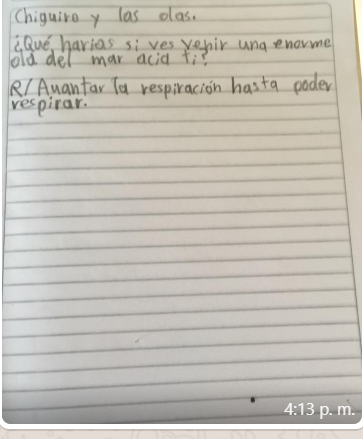 Chiguiro y las olas.
¿Qué harias si ves venir una enorme
old del mar acia ti?
R/Auantar la respiración hasta poder
respirar.
4:13 p. m.